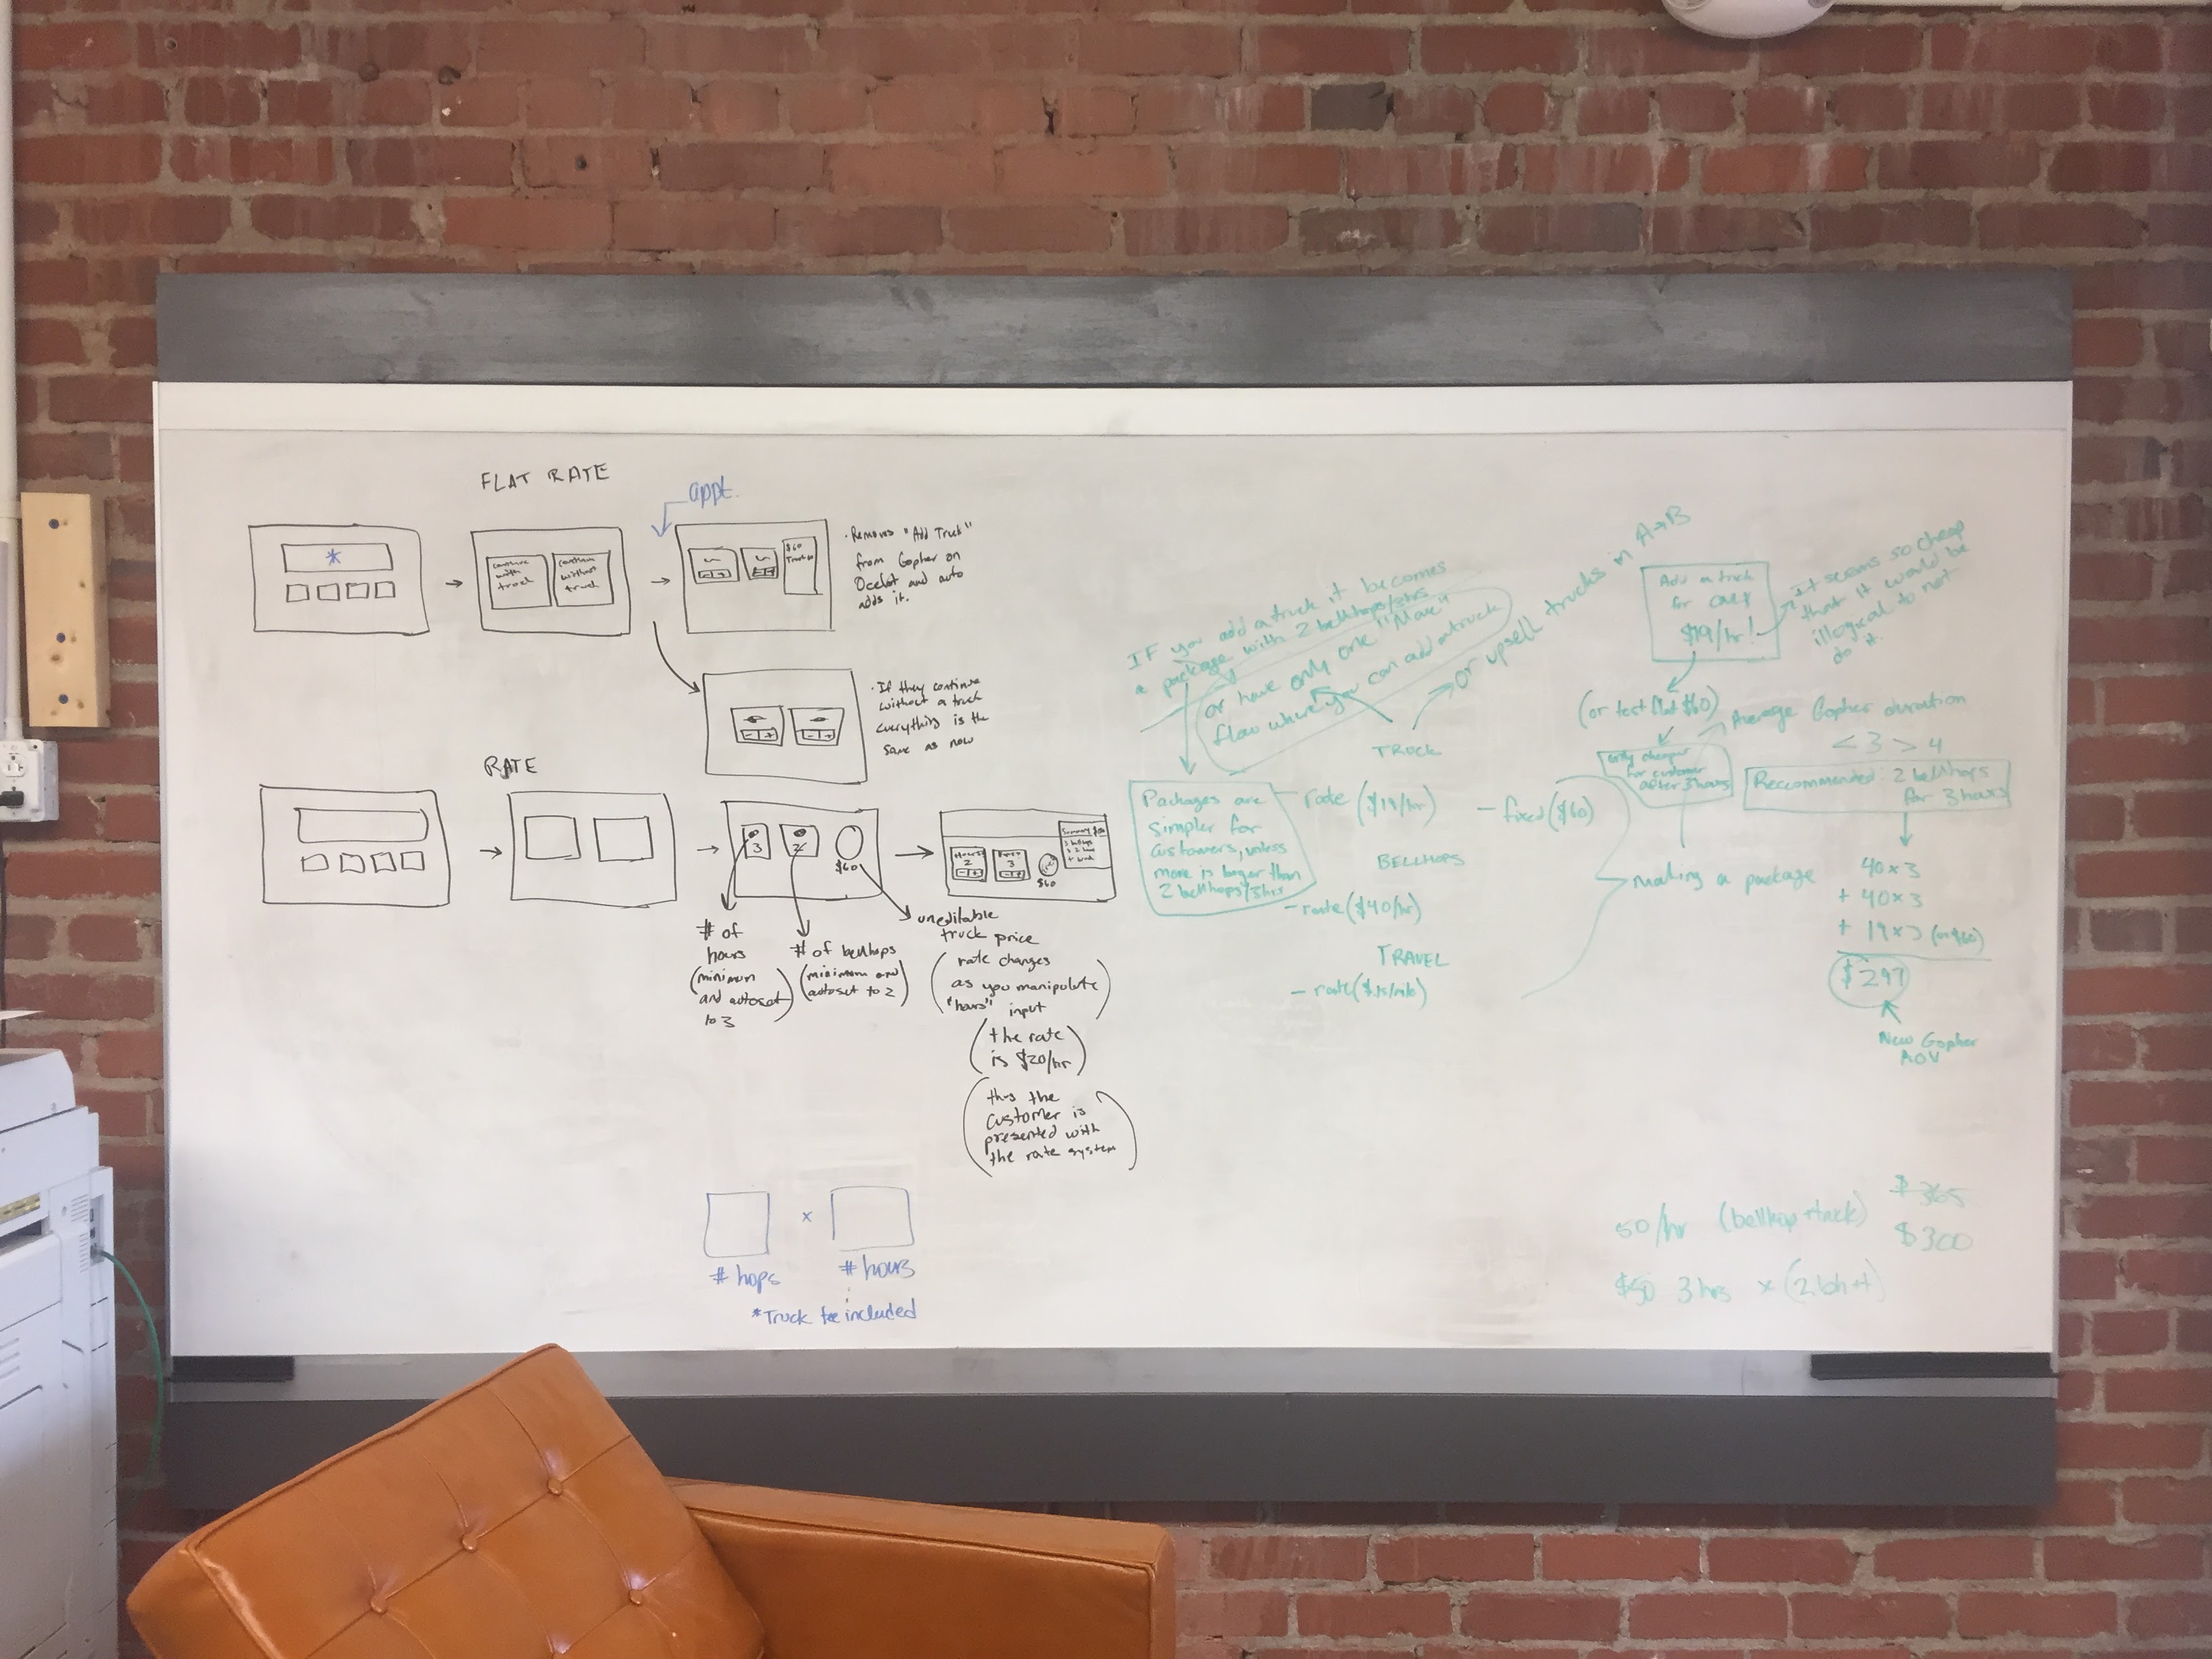 FLAT RATE
appt.
*
continue
with
truck
continue
without
truck
$60
Truck
· Removes "Add Truck"
from Gopher on
Ocelot and auto
adds it.
· If they continue
without a truck
everything is the
same as now
RATE
3
2
$60
Hours
2
- +
3
- +
$60
Summary
# of
hours
(minimum
and autoset
to 3
# of bellhops
(minimum and
autoset to 2)
uneditable
truck price
(rate changes
as you manipulate
"hours" input)
(the rate
is $20/hr)
(thus the
customer is
presented with
the rate system)
x
# hops
# hours
*Truck fee included
IF you add a truck it becomes
a package with 2 bellhops/3hrs
or have only one "Move"
flow where you can add a truck
or upsell trucks in A→B
Packages are
simpler for
customers, unless
move is bigger than
2 bellhops/3hrs
TRUCK
- rate ($19/hr)
- fixed ($60)
BELLHOPS
- rate ($40/hr)
TRAVEL
making a package
Add a truck
for only
$19/hr!
It seems so cheap
that it would be
illogical to not
do it.
(or test flat $60)
only cheaper
for customer
after 3 hours
Average Gopher duration
< 3 > 4
Reccommended: 2 bellhops
for 3 hours
40x3
+ 40x3
+ 19x3 (or $60)
$297
New Gopher
AOV
50/hr (bellhop + truck)
$365
$300
$50 3 hrs x (2 bh + t)